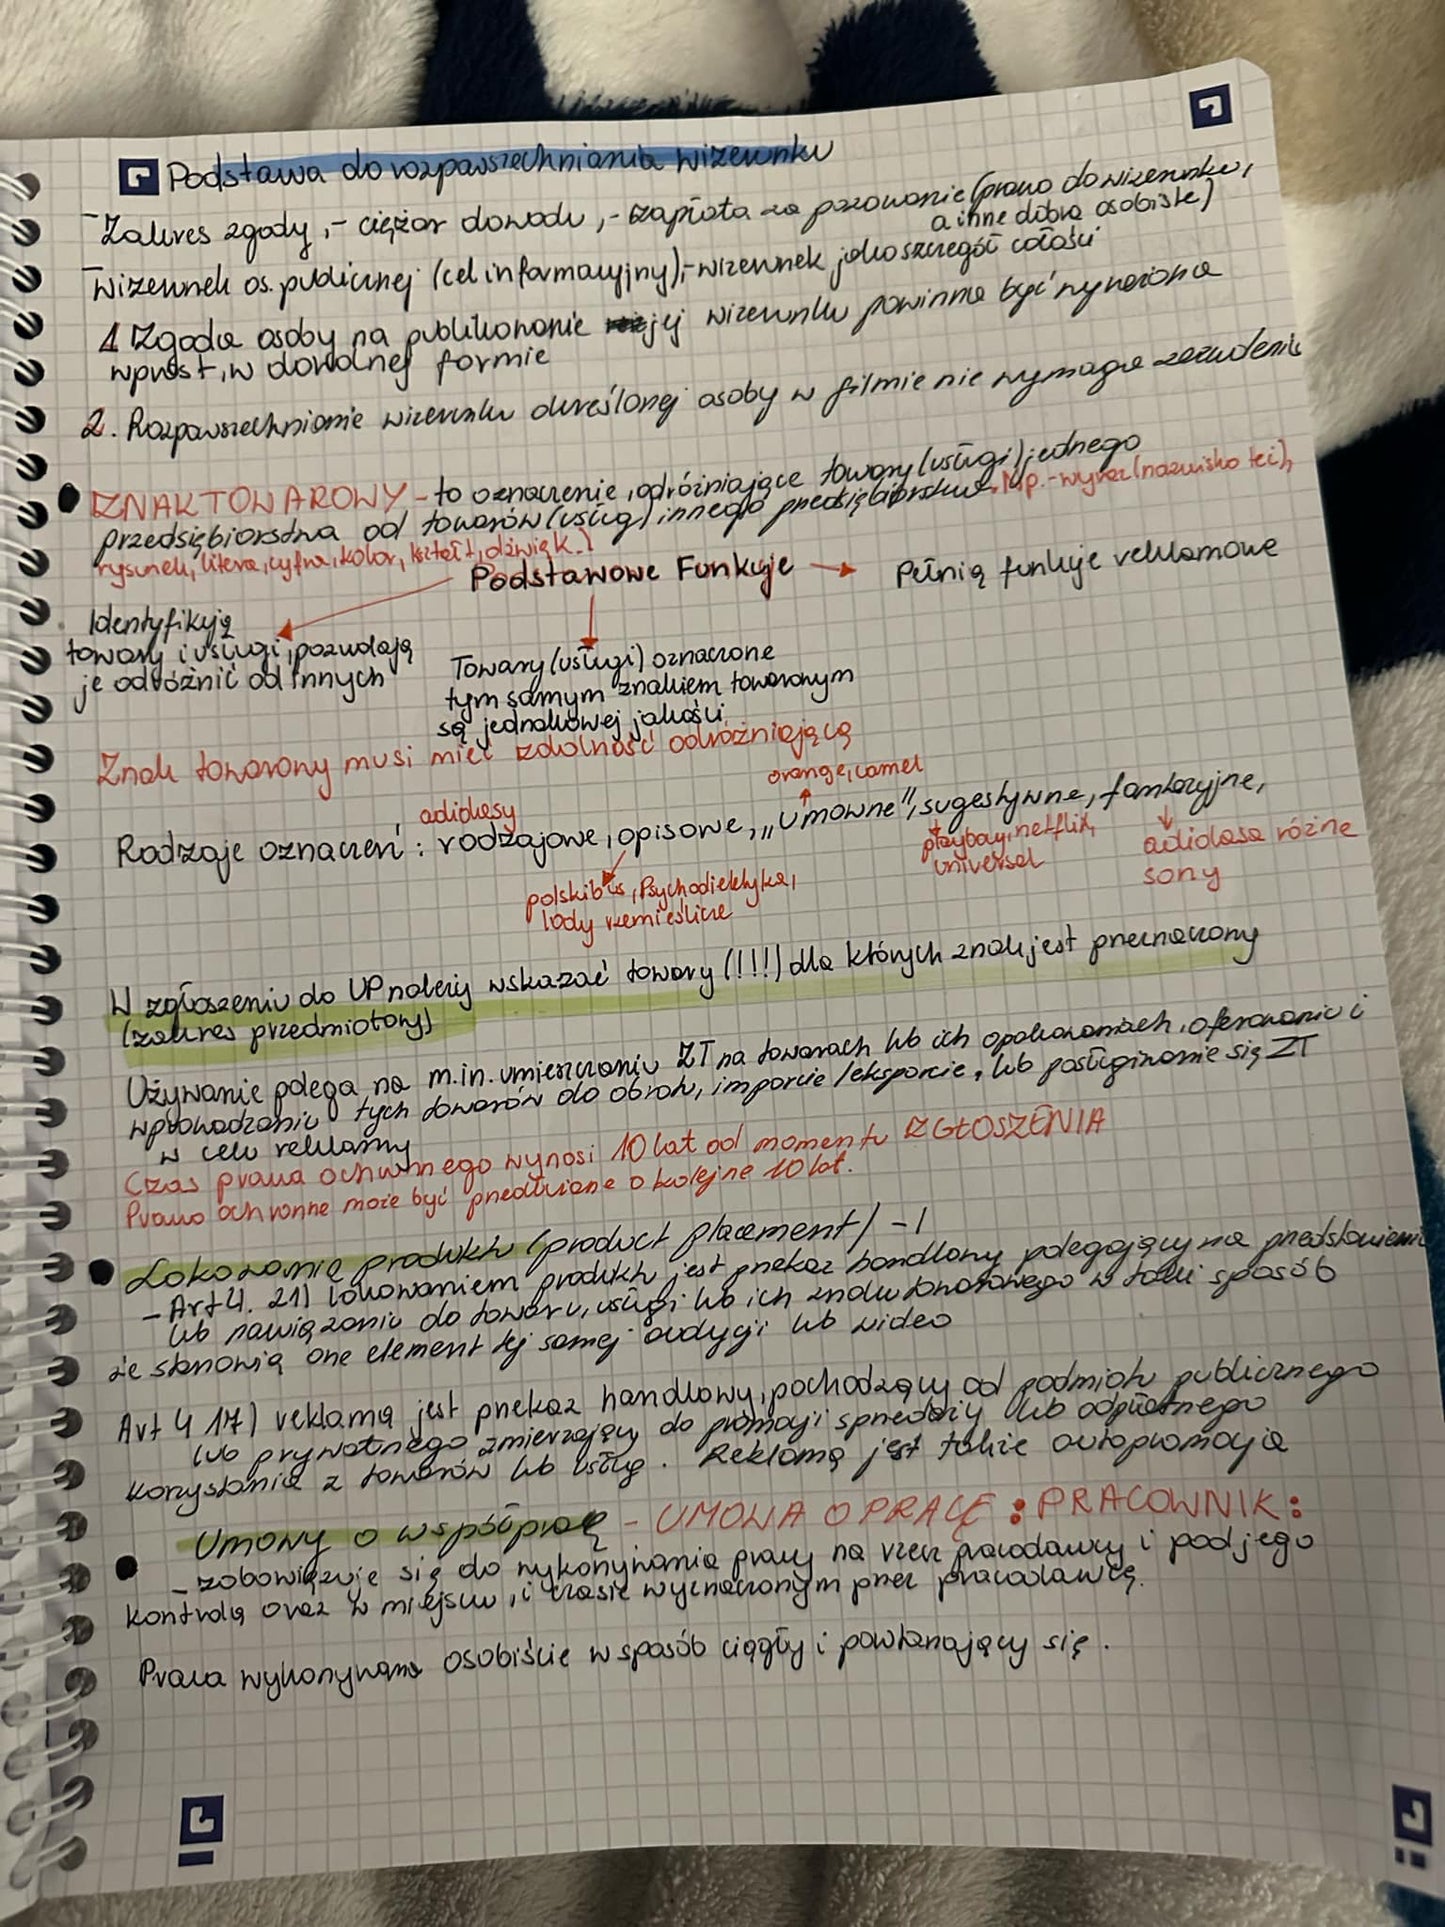 Podstawa do rozpowszechniania wizerunku
- Zakres zgody, - ciężar dowodu, - zapłata za pozowanie (prawo do wizerunku,
a inne dobra osobiste)
- wizerunek os. publicznej (cel informacyjny), - wizerunek jako szczegół całości
1 Zgoda osoby na publikowanie jej wizerunku powinna być wyrażona
wprost, w dowolnej formie
2. Rozpowszechnianie wizerunku określonej osoby w filmie nie wymaga zezwolenia
ZNAK TOWAROWY - to oznaczenie, odróżniające towary (usługi) jednego
przedsiębiorstwa od towarów (usług) innego przedsiębiorstwa. Np. - wyraz (nazwisko też),
rysunek, litera, cyfra, kolor, kształt, dźwięk.)
Podstawowe Funkcje → Pełnią funkcje reklamowe
Identyfikują
towary i usługi, pozwalają
je odróżnić od innych
Towary (usługi) oznaczone
tym samym znakiem towarowym
są jednakowej jakości
Znak towarowy musi mieć zdolność odróżniającą
orange, camel
adidasy
Rodzaje oznaczeń: rodzajowe, opisowe, „umowne", sugestywne, fantazyjne,
playboy, netflix,
universal
adidasa różne
sony
polskibus, Psychodietetyka,
lody rzemieślnicze
W zgłoszeniu do UP należy wskazać towary (!!!) dla których znak jest przeznaczony
(zakres przedmiotowy)
Używanie polega na m.in. umieszczaniu ZT na towarach lub ich opakowaniach, oferowaniu i
wprowadzaniu tych towarów do obrotu, imporcie/eksporcie, lub posługiwanie się ZT
w celu reklamy
Czas prawa ochronnego wynosi 10 lat od momentu ZGŁOSZENIA
Prawo ochronne może być przedłużane o kolejne 10 lat.
Lokowanie produktu (product placement) -
- Art 4. 21) lokowaniem produktu jest przekaz handlowy polegający na przedstawieniu
lub nawiązaniu do towaru, usługi lub ich znaku towarowego w taki sposób
że stanowią one element tej samej audycji lub wideo
Art 4 17) reklamą jest przekaz handlowy, pochodzący od podmiotu publicznego
lub prywatnego zmierzający do promocji sprzedaży lub odpłatnego
korzystania z towarów lub usług. Reklamą jest także autopromocja
Umowy o współpracę - UMOWA O PRACĘ: PRACOWNIK:
- zobowiązuje się do wykonywania pracy na rzecz pracodawcy i pod jego
kontrolą oraz w miejscu, i czasie wyznaczonym przez pracodawcę.
Praca wykonywana osobiście w sposób ciągły i powtarzający się.